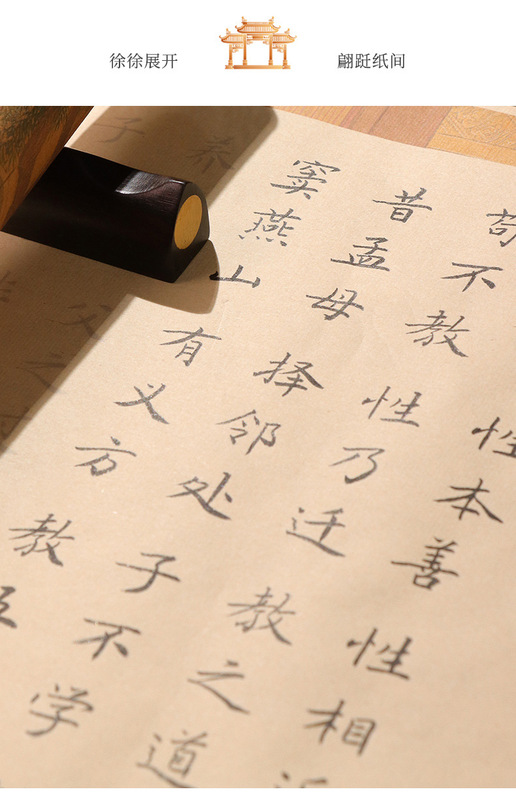 徐徐展开
翩跹纸间
性本善性相
苟不教性乃迁教之道
昔孟母择邻处子不学
窦燕山有义方教五
养